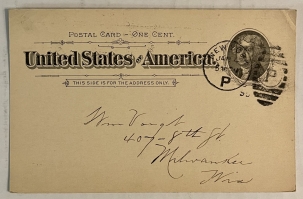 POSTAL CARD – ONE CENT.
United States of America.
THIS SIDE IS FOR THE ADDRESS ONLY.
NEW
P P
Wm Vought
407 - 8th St
Milwaukee
Wis